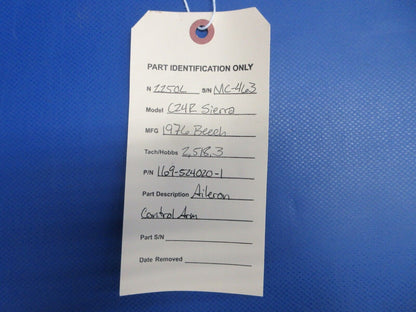 PART IDENTIFICATION ONLY
N 2250L S/N MC-463
Model C24R Sierra
MFG 1976 Beech
Tach/Hobbs 2,518.3
P/N 169-524020-1
Part Description Aileron
Control Arm
Part S/N
Date Removed